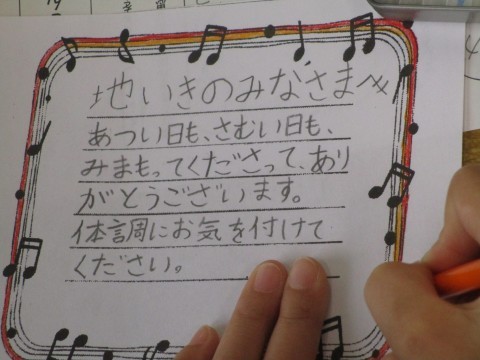 地いきのみなさまへ
あつい日も、さむい日も、
みまもってくださって、あり
がとうございます。
体調にお気を付けて
ください。